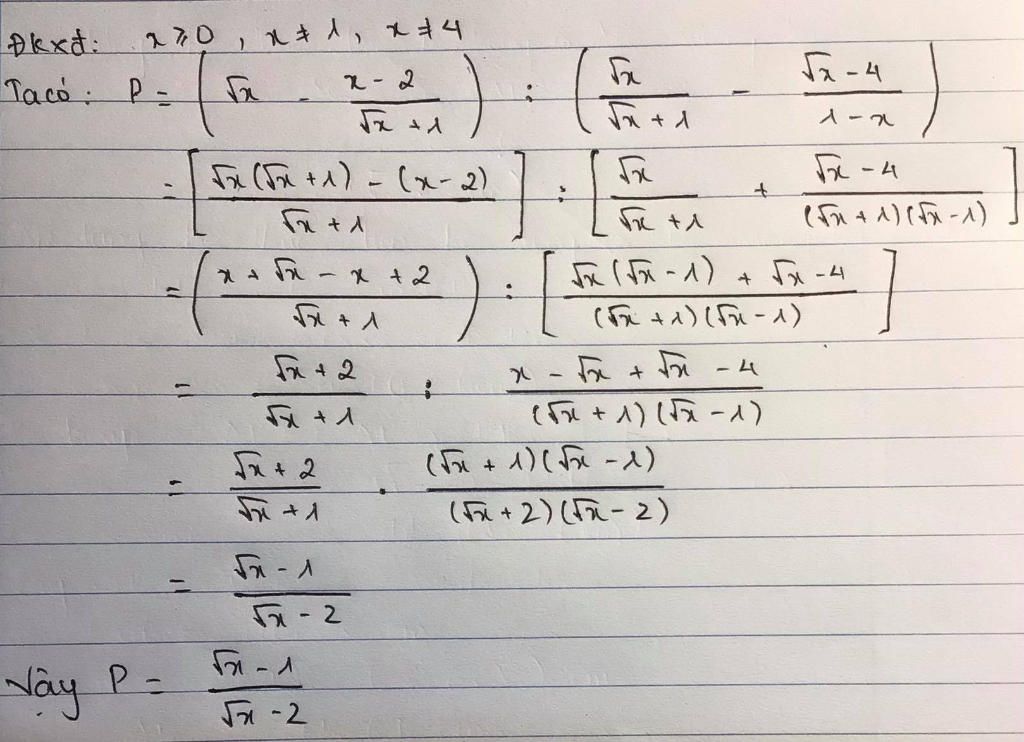 Đkxđ: x ⩾ 0 , x ≠ 1 , x ≠ 4
Ta có : P = ( √x - (x - 2)/(√x + 1) ) : ( √x/(√x + 1) - (√x - 4)/(1 - x) )
= [ (√x(√x + 1) - (x - 2))/(√x + 1) ] : [ √x/(√x + 1) + (√x - 4)/((√x + 1)(√x - 1)) ]
= ( (x + √x - x + 2)/(√x + 1) ) : [ (√x(√x - 1) + √x - 4)/((√x + 1)(√x - 1)) ]
= (√x + 2)/(√x + 1) : (x - √x + √x - 4)/((√x + 1)(√x - 1))
= (√x + 2)/(√x + 1) . ((√x + 1)(√x - 1))/((√x + 2)(√x - 2))
= (√x - 1)/(√x - 2)
Vậy P = (√x - 1)/(√x - 2)